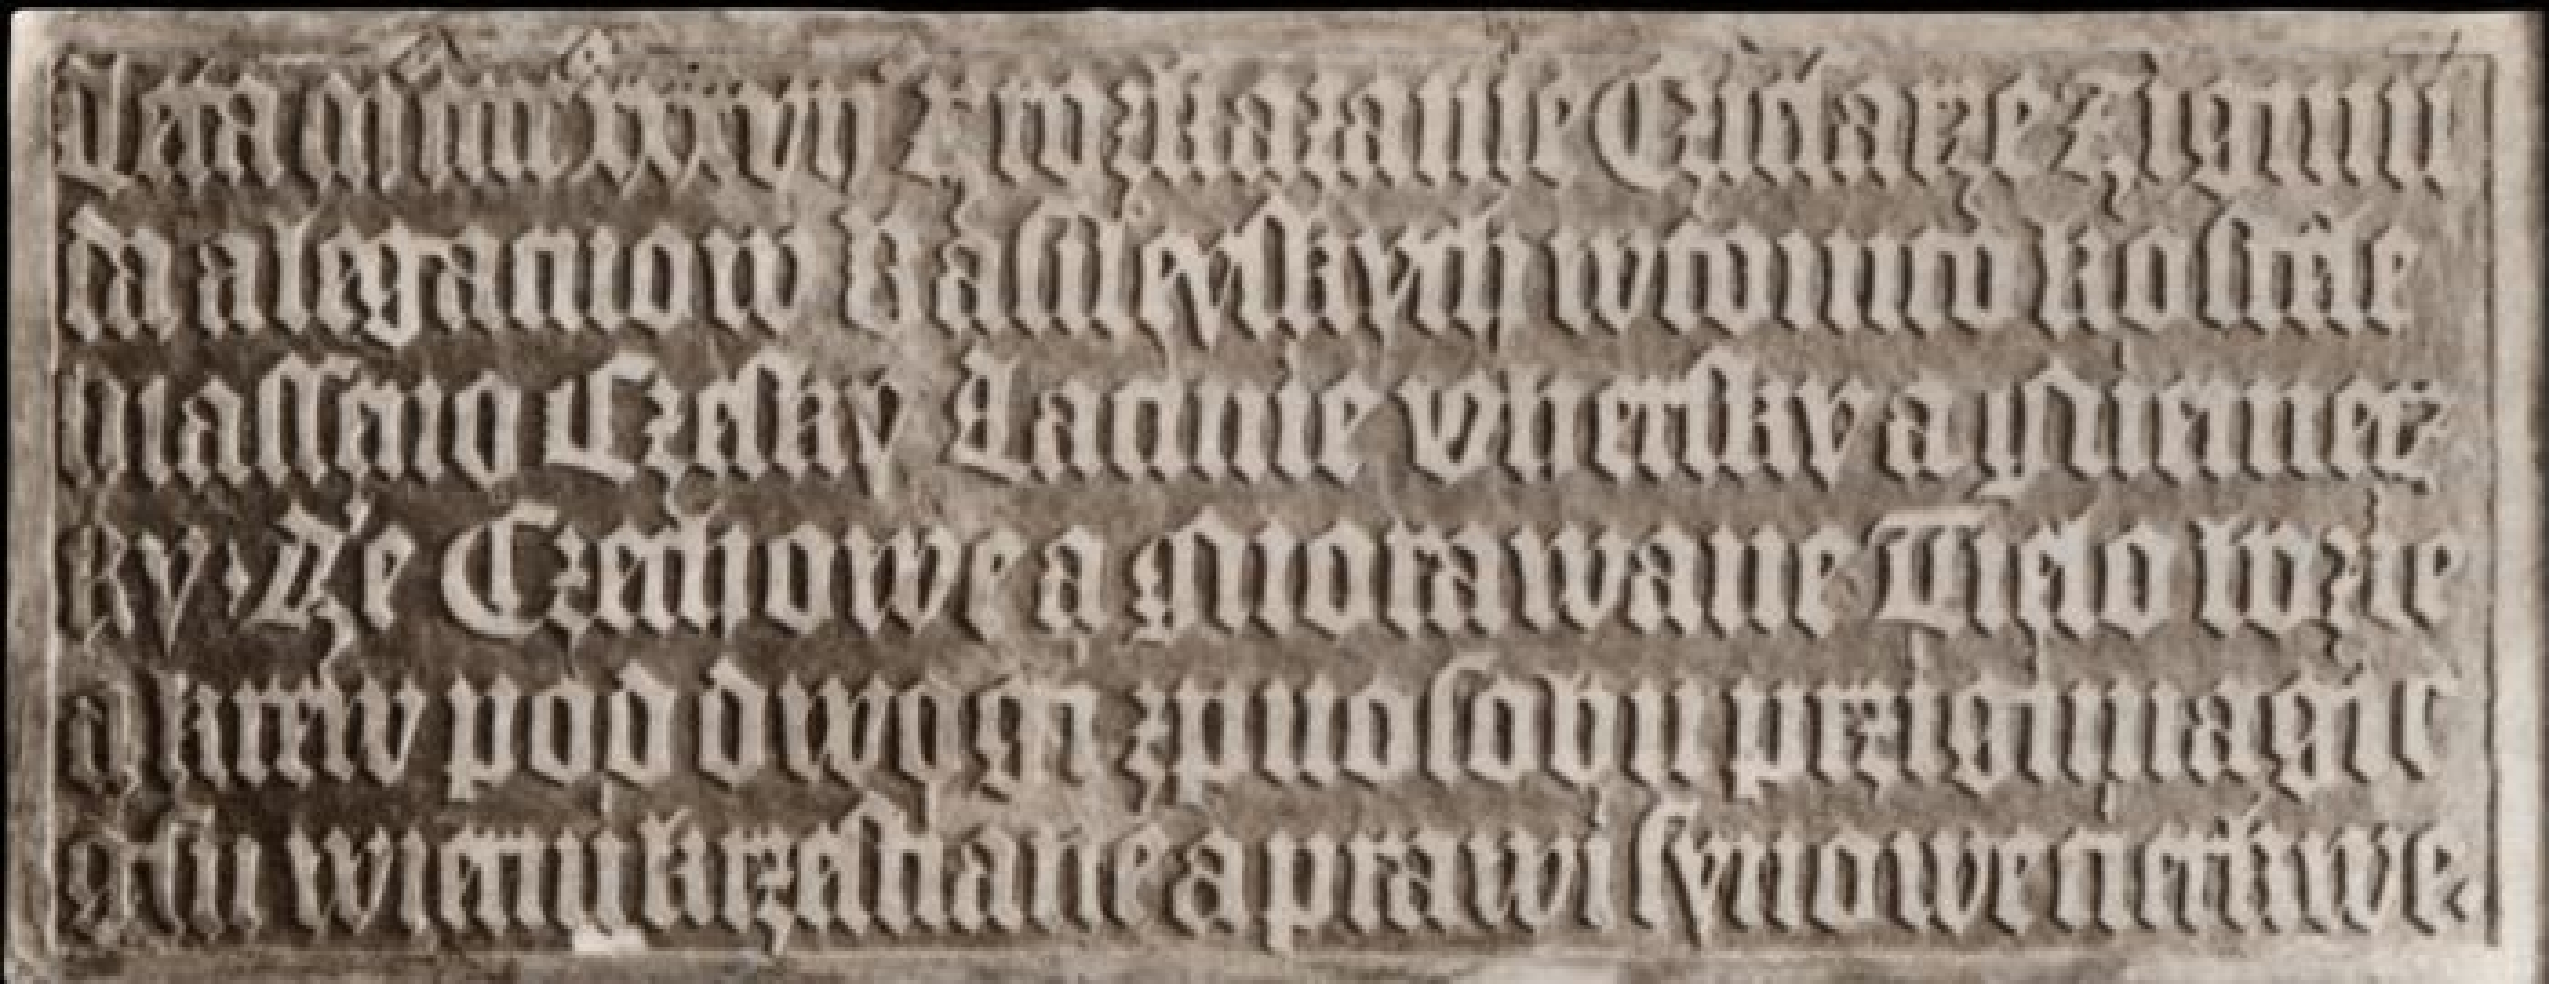 Leta mcccc xxxvij z rozkazanie Cziesarze Zigmu
da a legatuow Basileyskych w tomto kostele
hlasseno Czesky Latinie vhersky a Niemecz
ky ze Czechowe a Morawane Tielo bozie
a krew pod dwogi zpuosobu przigimagic
gsu wierni krzestiane a prawi synowe cierkwe